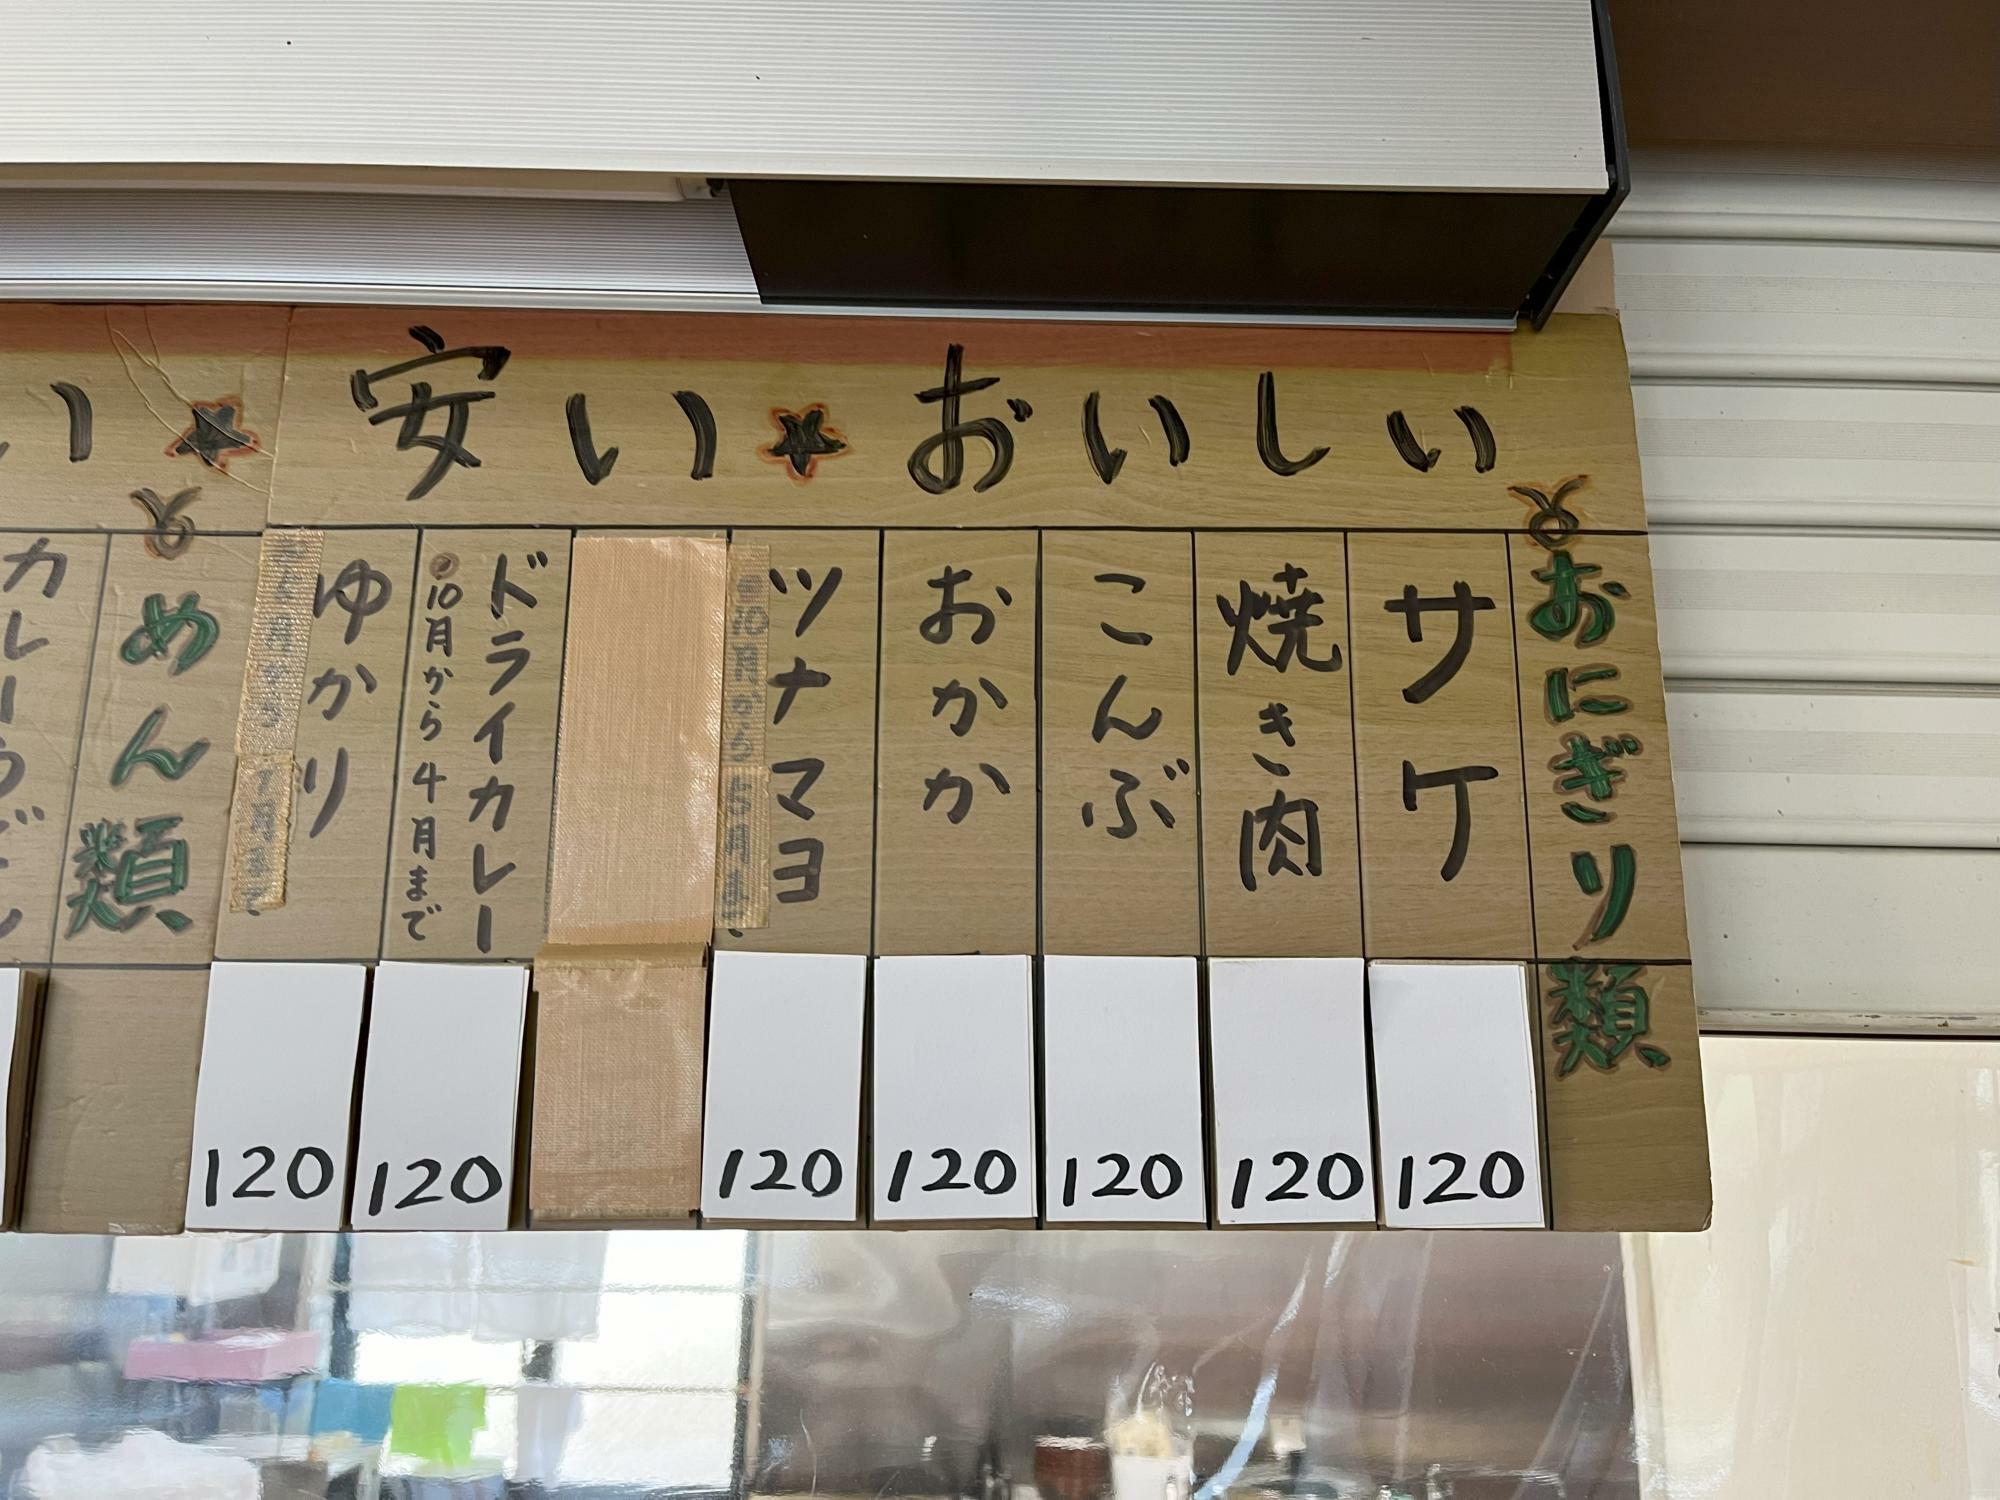 おいしい★安い★
おにぎり類
サケ
120
焼き肉
120
こんぶ
120
おかか
120
ツナマヨ
10月から5月まで
120
ドライカレー
10月から4月まで
120
ゆかり
7月まで
120
めん類
カレーうどん